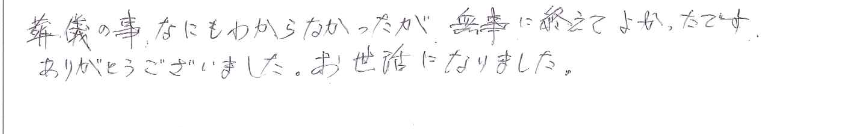 葬儀の事、なにもわからなかったが 無事に終えてよかったです.
ありがとうございました。お世話になりました。